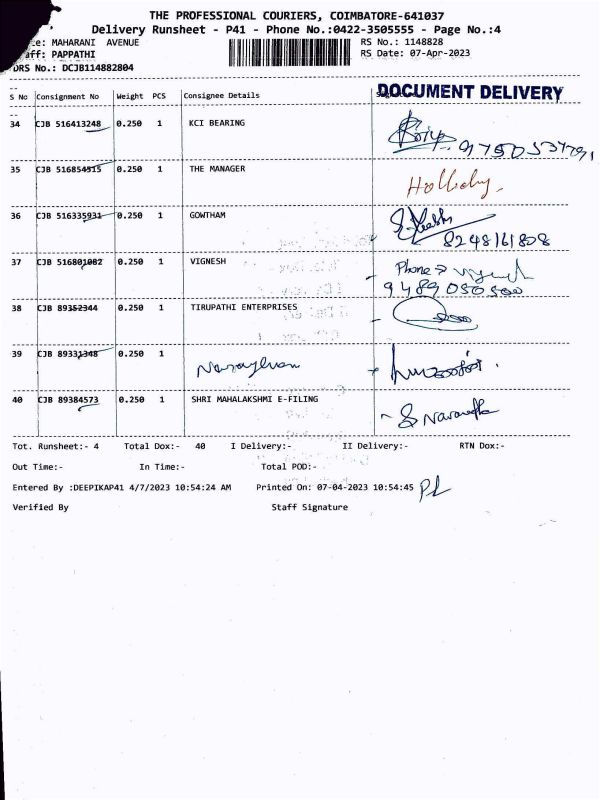 THE PROFESSIONAL COURIERS, COIMBATORE-641037
Delivery Runsheet - P41 - Phone No.:0422-3505555 - Page No.:4
te: MAHARANI AVENUE
RS No.: 1148828
aff: PAPPATHI
RS Date: 07-Apr-2023
DRS No.: DCJB114882804
S No Consignment No Weight PCS Consignee Details
DOCUMENT DELIVERY
34 CJB 516413248 0.250 1 KCI BEARING
35 CJB 516854515 0.250 1 THE MANAGER
36 CJB 516335931 0.250 1 GOWTHAM
8248161808
37 CJB 516801082 0.250 1 VIGNESH
Phone
9489050500
38 CJB 89352344 0.250 1 TIRUPATHI ENTERPRISES
39 CJB 89331348 0.250 1
40 CJB 89384573 0.250 1 SHRI MAHALAKSHMI E-FILING
Tot. Runsheet:- 4 Total Dox:- 40 I Delivery:- II Delivery:- RTN Dox:-
Out Time:- In Time:- Total POD:-
Entered By :DEEPIKAP41 4/7/2023 10:54:24 AM Printed On: 07-04-2023 10:54:45
Verified By Staff Signature